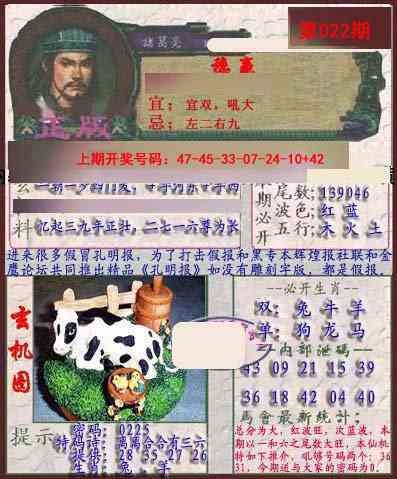 第022期
諸葛亮
穩贏
宜：宜双，吼大
忌：左二右九
正版
上期开奖号码：47-45-33-07-24-10+42
料
忆起三九年正壮，二七一六尊为长
期必开
尾数:139046
波色:红 蓝
五行:木 火 土
进来很多假冒孔明报，为了打击假报和黑专本辉煌报社联和金
鹰论坛共同推出精品《孔明报》如没有雕刻字版，都是假报.
玄机图
--必开生肖--
双: 兔 牛 羊
单: 狗 龙 马
--内部泄码--
43 09 21 15 39
36 18 42 04 40
馬會最新統計:
总分为大，红波旺，次蓝波，本
期以一和六之尾数大旺，本仙机
特如下推介，吼够号码两个：36
31，今期送与大家的密码为0.
提示
密码：0225
特码诗：离离合合有三六
提供：28 35 27 26
生肖：兔，羊